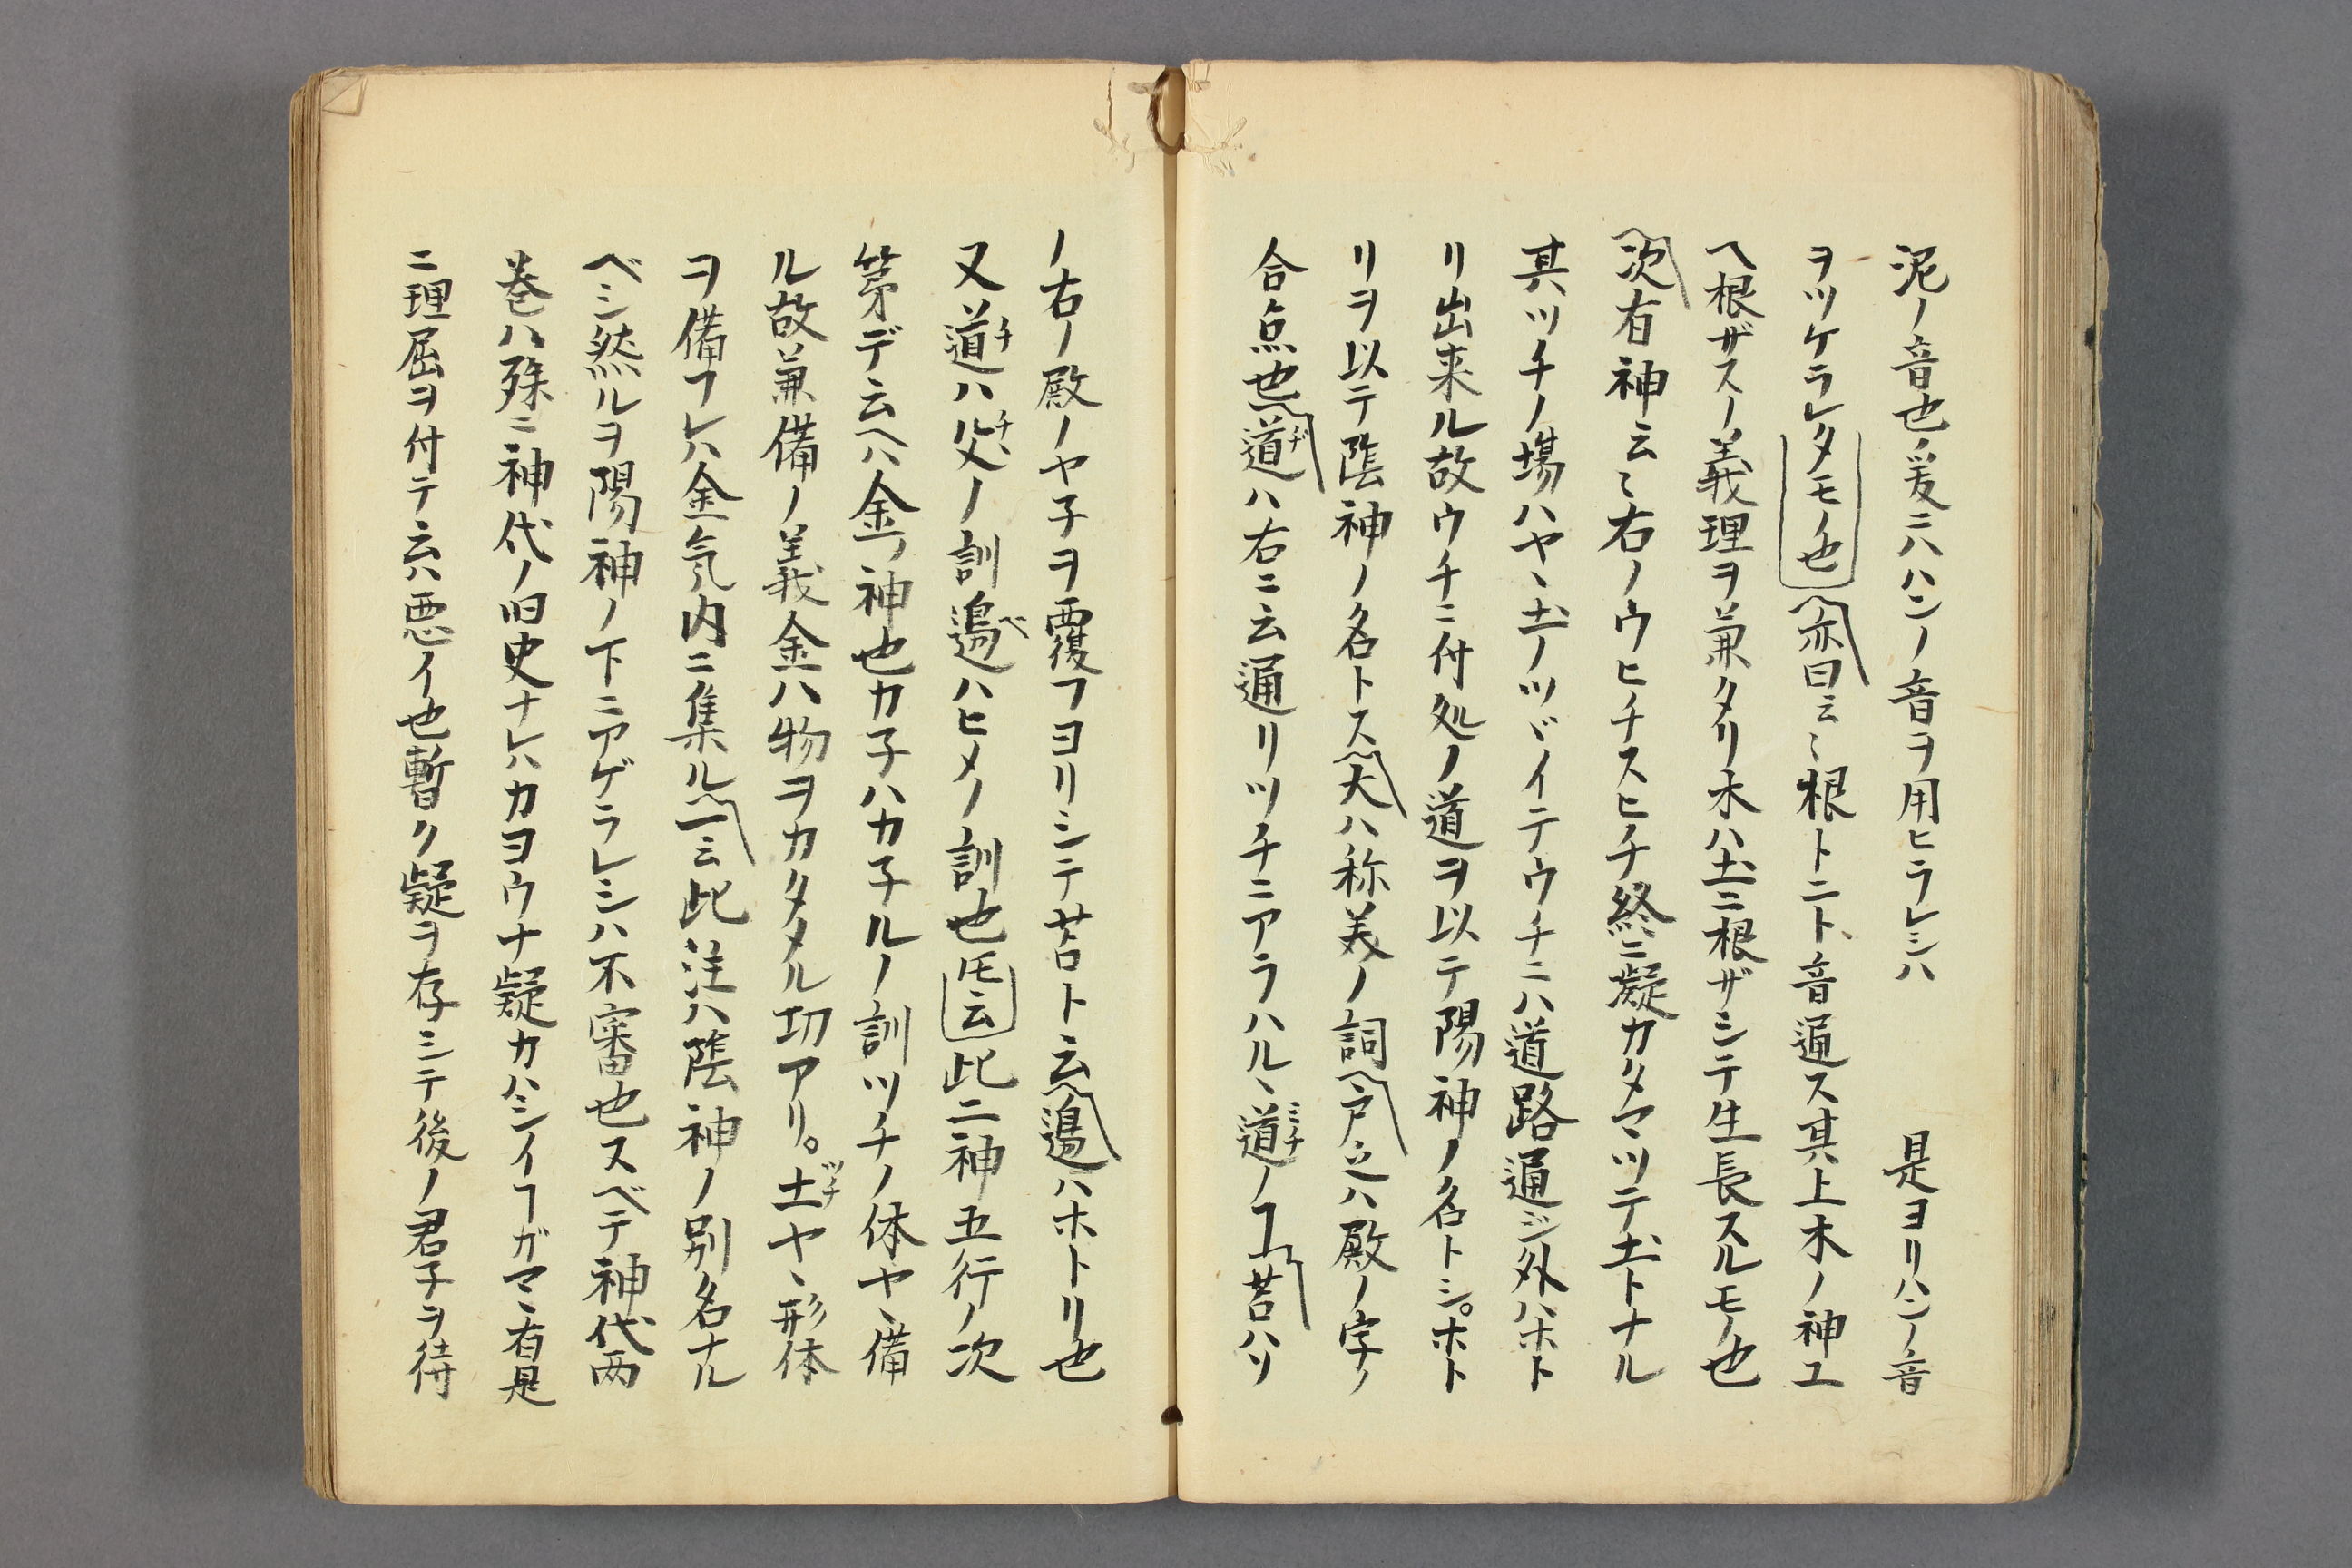 泥ノ音也爰ニハハンノ音ヲ用ヒラレシハ　是ヨリハンノ音
ヲツケラレタモノ也亦曰云〻根トニト音通ス其上木ノ神エ
ヘ根ザスノ義理ヲ兼タリ木ハ土ニ根ザシテ生長スルモノ也
次有神云〻右ノウヒチスヒチ終ニ凝カタマツテ土トナル
其ツチノ場ハヤヽ土ノツヾイテウチニハ道路通ジ外ハホト
リ出来ル故ウチニ付処ノ道ヲ以テ陽神ノ名トシ。ホト
リヲ以テ陰神ノ名トス大ハ称美ノ詞戸之ハ殿ノ字ノ
合点也道ハ右ニ云通リツチニアラハルヽ道ノヿ苫ハソ
ノ右ノ殿ノヤ子ヲ覆フヨリシテ苫ト云邉ハホトリ也
又道ハ父ノ訓邉ハヒメノ訓也𪜈云此二神五行ノ次
第デ云ヘハ金ノ神也カ子ハカ子ルノ訓ツチノ体ヤヽ備
ル故兼備ノ義金ハ物ヲカタメル切アリ。土ヤヽ形体
ヲ備フレハ金気内ニ集ル一云此注ハ陰神ノ別名ナル
ベシ然ルヲ陽神ノ下ニアゲラレシハ不審也スベテ神代両
巻ハ殊ニ神代ノ旧史ナレハカヨウナ疑カハシイヿガマヽ有是
ニ理屈ヲ付テ云ハ悪イ也暫ク疑ヲ存シテ後ノ君子ヲ待